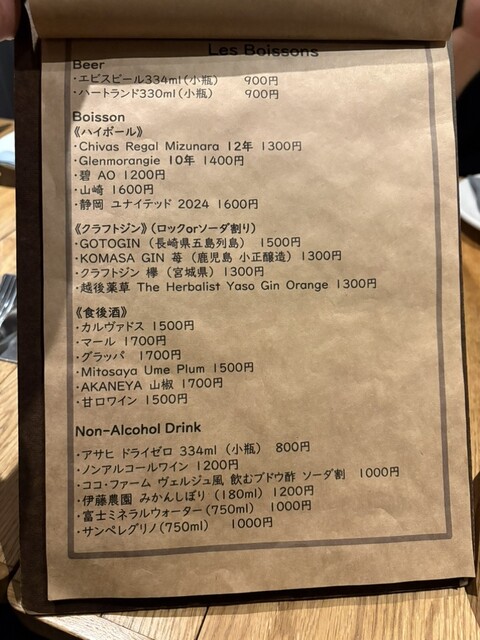 Les Boissons
Beer
・エビスビール334ml（小瓶） 900円
・ハートランド330ml（小瓶） 900円
Boisson
《ハイボール》
・Chivas Regal Mizunara 12年 1300円
・Glenmorangie 10年 1400円
・碧 AO 1200円
・山崎 1600円
・静岡 ユナイテッド 2024 1600円
《クラフトジン》（ロックorソーダ割り）
・GOTOGIN（長崎県五島列島） 1500円
・KOMASA GIN 苺（鹿児島 小正醸造）1300円
・クラフトジン 欅（宮城県）1300円
・越後薬草 The Herbalist Yaso Gin Orange 1300円
《食後酒》
・カルヴァドス 1500円
・マール 1700円
・グラッパ 1700円
・Mitosaya Ume Plum 1500円
・AKANEYA 山椒 1700円
・甘口ワイン 1500円
Non-Alcohol Drink
・アサヒ ドライゼロ 334ml（小瓶） 800円
・ノンアルコールワイン 1200円
・ココ・ファーム ヴェルジュ風 飲むブドウ酢 ソーダ割 1000円
・伊藤農園 みかんしぼり（180ml）1200円
・富士ミネラルウォーター（750ml） 1000円
・サンペレグリノ（750ml） 1000円